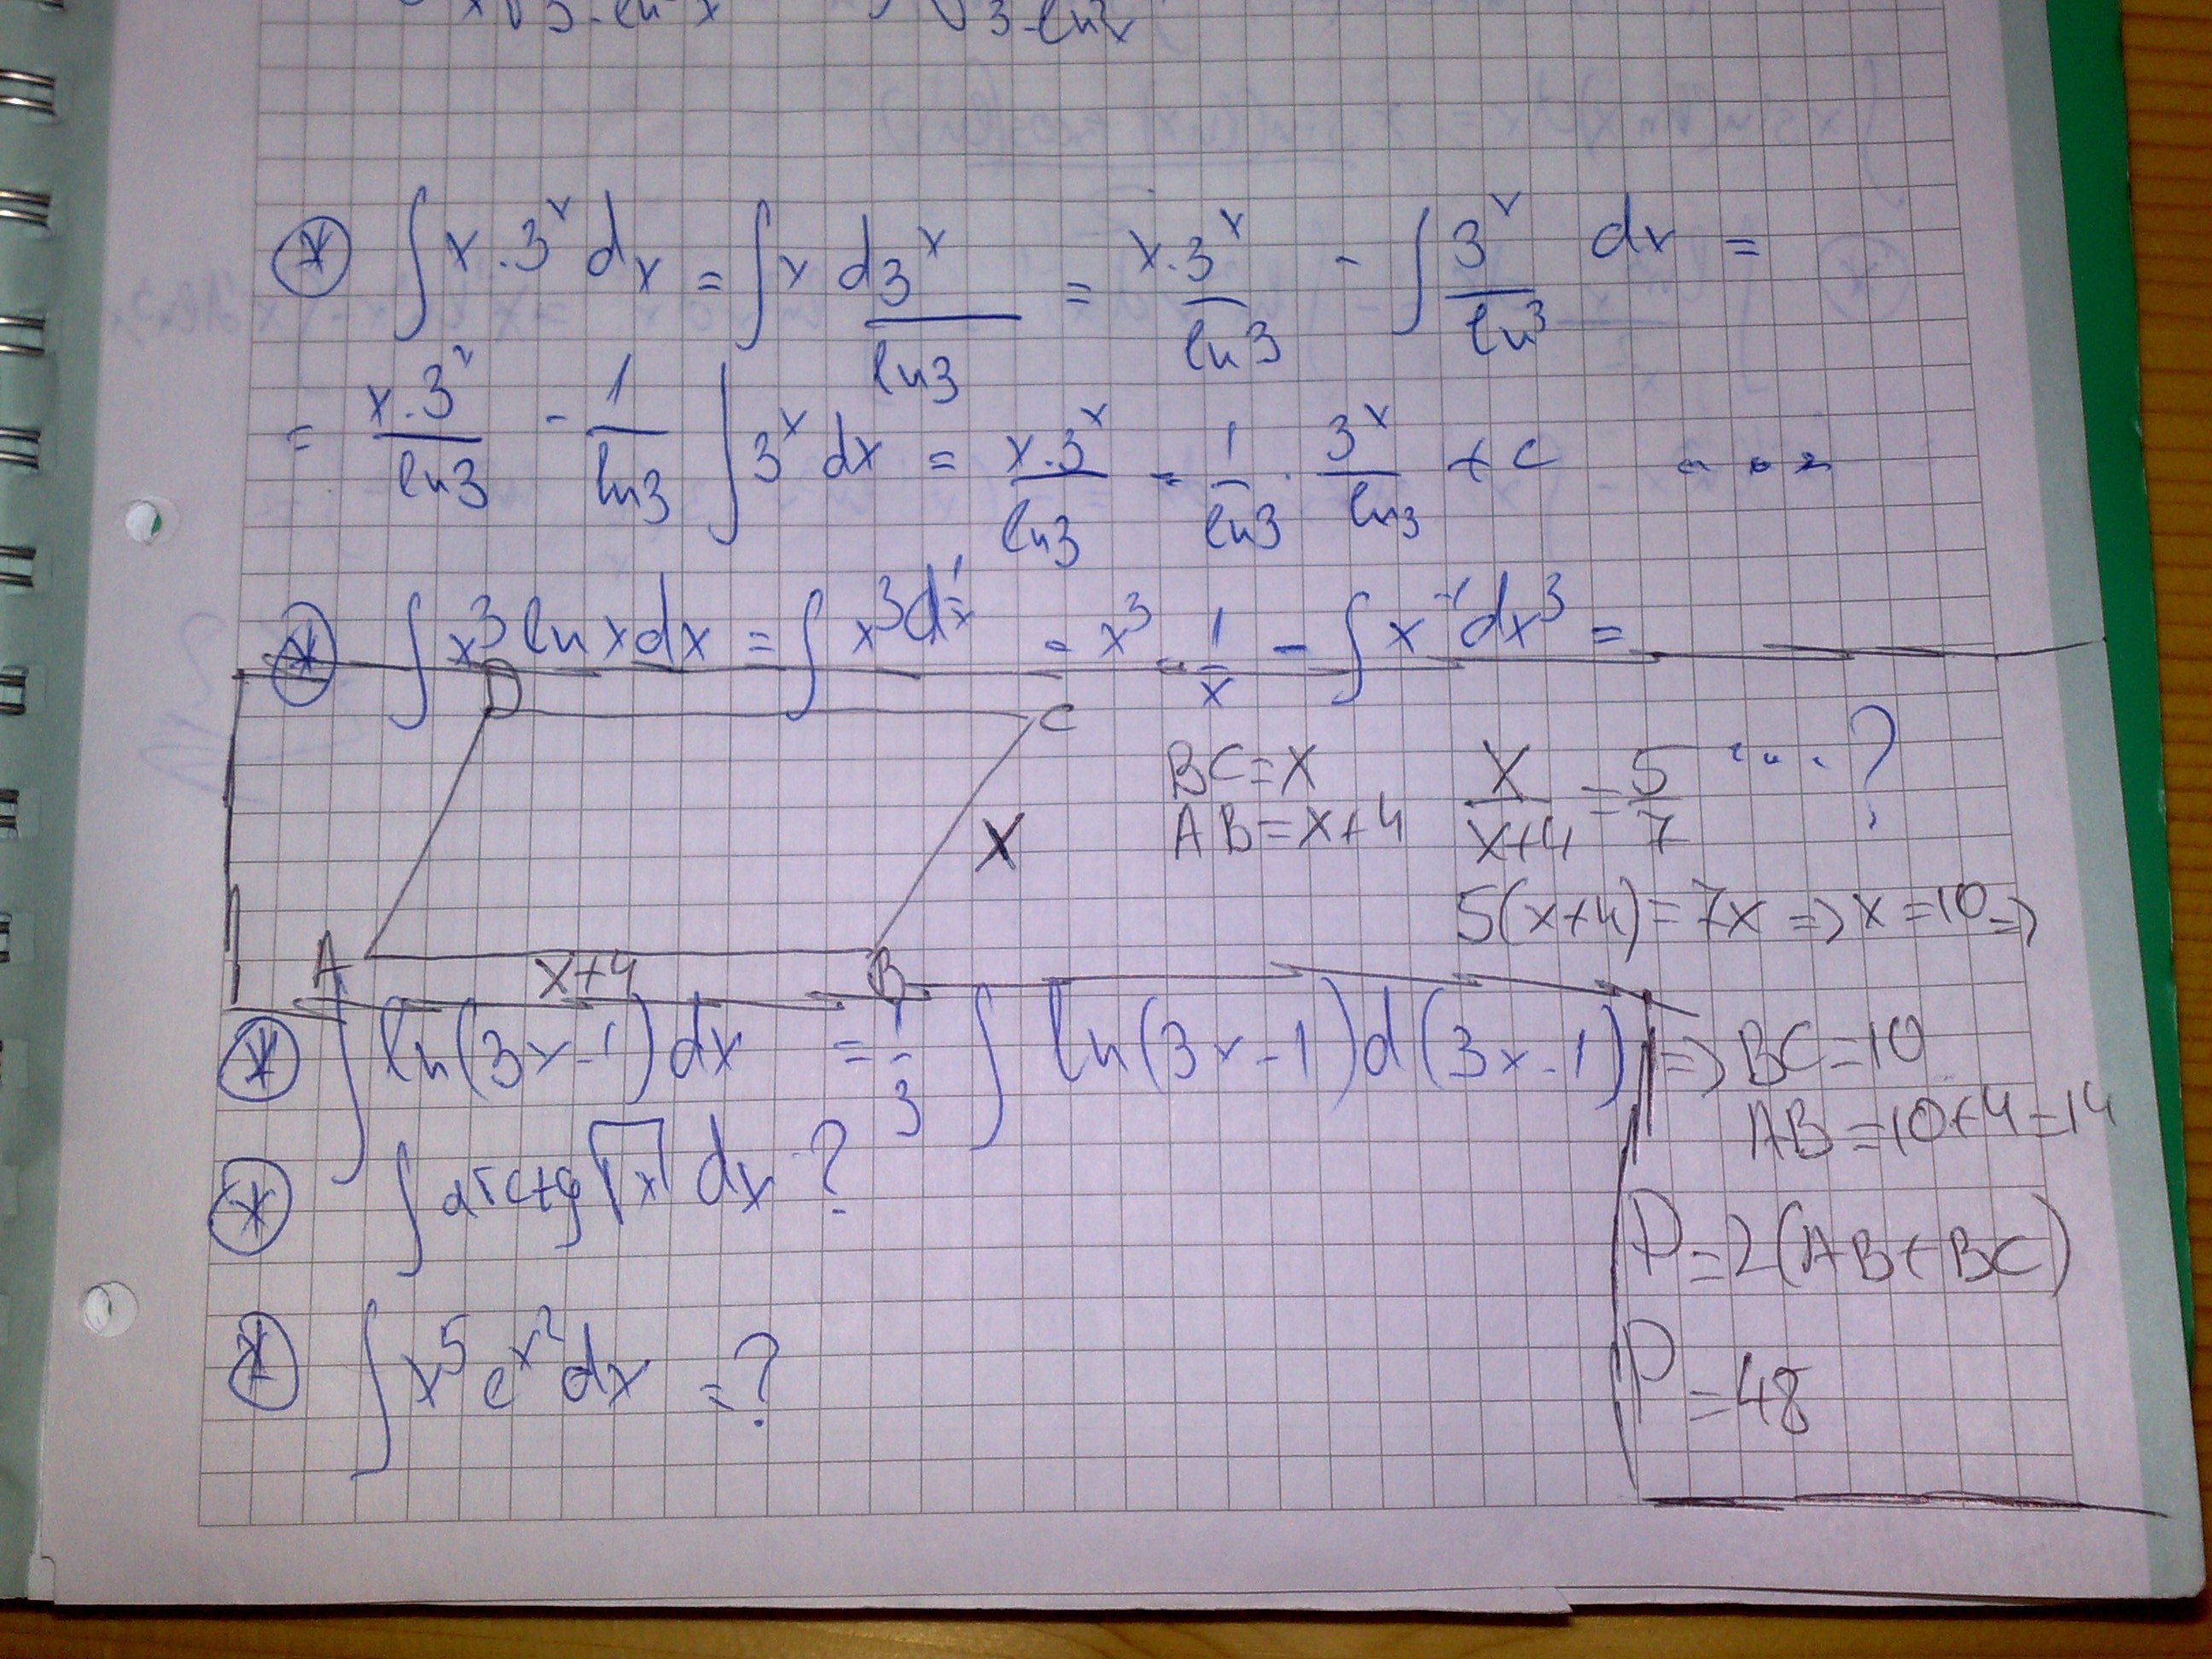 x√3-ln²x √3-ln²x
⊛ ∫ x.3^x dx = ∫ x d3^x/ln3 = x.3^x/ln3 - ∫ 3^x/ln3 dx =
= x.3^x/ln3 - 1/ln3 ∫ 3^x dx = x.3^x/ln3 - 1/ln3 . 3^x/ln3 + C ...
⊛ ∫ x³ ln x dx = ∫ x³ d 1/x = x³ . 1/x - ∫ x^-1 dx³ =
D C
BC = x x/(x+4) = 5/7 ... ?
AB = x+4
x
5(x+4) = 7x => x = 10 =>
A x+4 B
⊛ ∫ ln(3x-1) dx = 1/3 ∫ ln(3x-1) d(3x-1)
=> BC = 10
AB = 10+4 = 14
⊛ ∫ arctg √x dx ?
P = 2(AB+BC)
⊛ ∫ x^5 e^x² dx = ?
P = 48